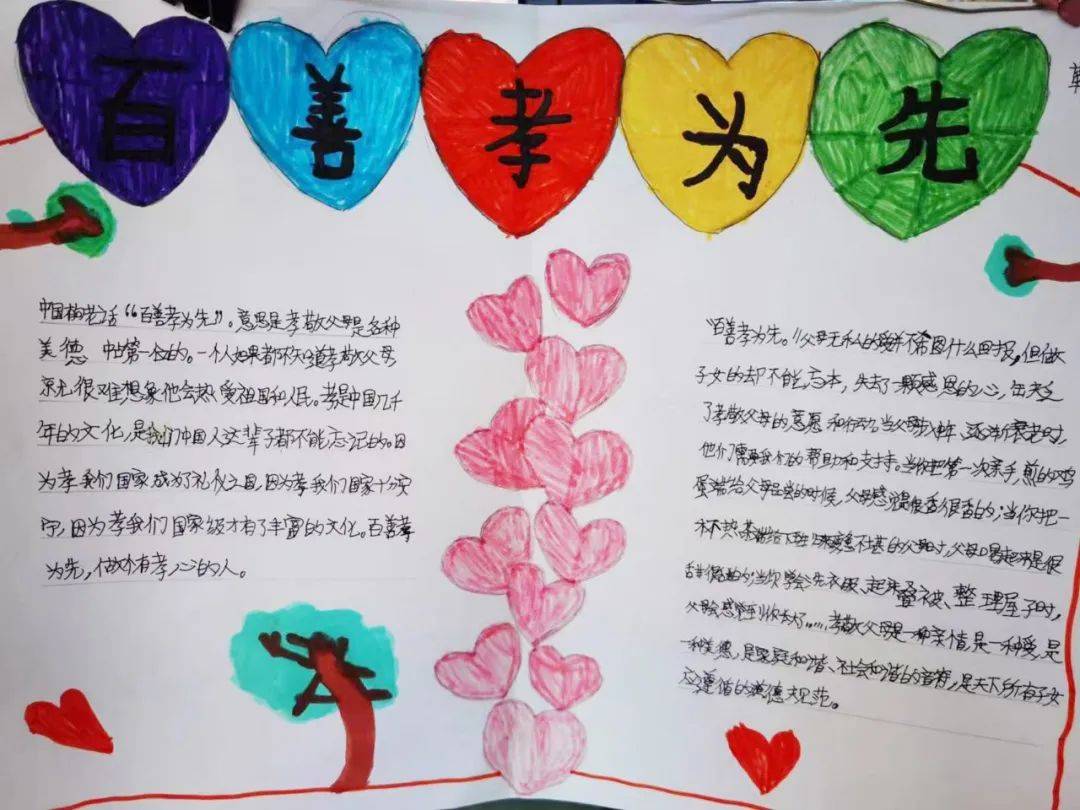 百善孝为先
中国有句老话“百善孝为先”。意思是孝敬父母是各种
美德中占第一位的。一个人如果都不知道孝敬父母
就很难想象他会热爱祖国和人民。孝是中国几千
年的文化,是我们中国人这辈子都不能忘记的。因
为孝我们国家成为了礼仪之国,因为孝我们国家十分安
宁,因为孝我们国家级才有了丰富的文化。百善孝
为先,做个有孝心的人。
“百善孝为先。”父母无私的爱并不希图什么回报,但做
子女的却不能忘本,失去了一颗感恩的心,缺乏
了孝敬父母的意愿和行动。当父母年逐渐衰老时,
他们需要我们的帮助和支持。当你把第一次亲手煎的鸡
蛋端给父母品尝的时候,父母感觉很香很香的;当你把一
杯热茶端给下班疲惫不堪的父母时,父母喝起来是很
甜很甜的;当你学会洗衣服、起来叠被、整理屋子时,
父母会感觉到你长大了……孝敬父母是一种亲情,是一种爱,是
一种美德,是家庭和谐、社会和谐的音符,是天下所有子女
应遵循的道德规范。